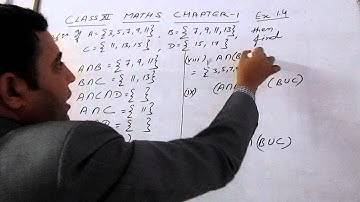 CLASS XI MATHS CHAPTER-1 Ex 1.4
If A = {3,5,7,9,11}, B = {7,9,11,13} then
C = {11,13,15}, D = {15,17} find
A∩B = {7,9,11}
B∩C = {11,13}
A∩C∩D = { }
A∩C = {11}
∩D = { }
(vii) A∩(B
= {3,5,7,
(ix) (A∩ (B∪C)
(B∪C)